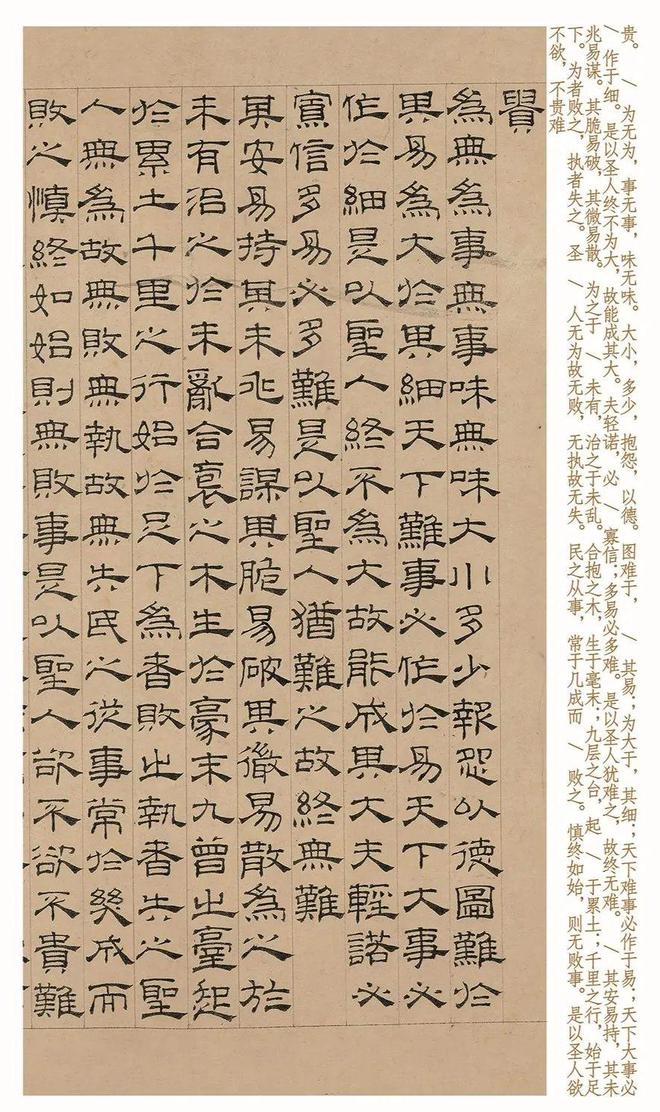 贵。 \ 为无为，事无事，味无味。大小，多少，抱怨，以德。图难于， \ 其易；为大于，其细；天下难事必作于易；天下大事必
\ 作于细。是以圣人终不为大，故能成其大。夫轻诺，必 \ 寡信；多易必多难。是以圣人犹难之，故终无难。 \ 其安易持，其未
兆易谋。其脆易破，其微易散。 为之于 \ 未有，治之于未乱。合抱之木，生于毫末；九层之台，起 \ 于累土；千里之行，始于足
下。为者败之，执者失之。圣 \ 人无为故无败，无执故无失。民之从事，常于几成而 \ 败之。慎终如始，则无败事。是以圣人欲
不欲，不贵难
貴
為無為事無事味無味大小多少報怨以德圖難於
其易為大於其細天下難事必作於易天下大事必
作於細是以聖人終不為大故能成其大夫輕諾必
寡信多易必多難是以聖人猶難之故終無難
其安易持其未兆易謀其脆易破其微易散為之於
未有治之於未亂合裒之木生於豪末九曾之臺起
於累土千里之行始於足下為者敗之執者失之聖
人無為故無敗無執故無失民之從事常於幾成而
敗之慎終如始則無敗事是以聖人欲不欲不貴難